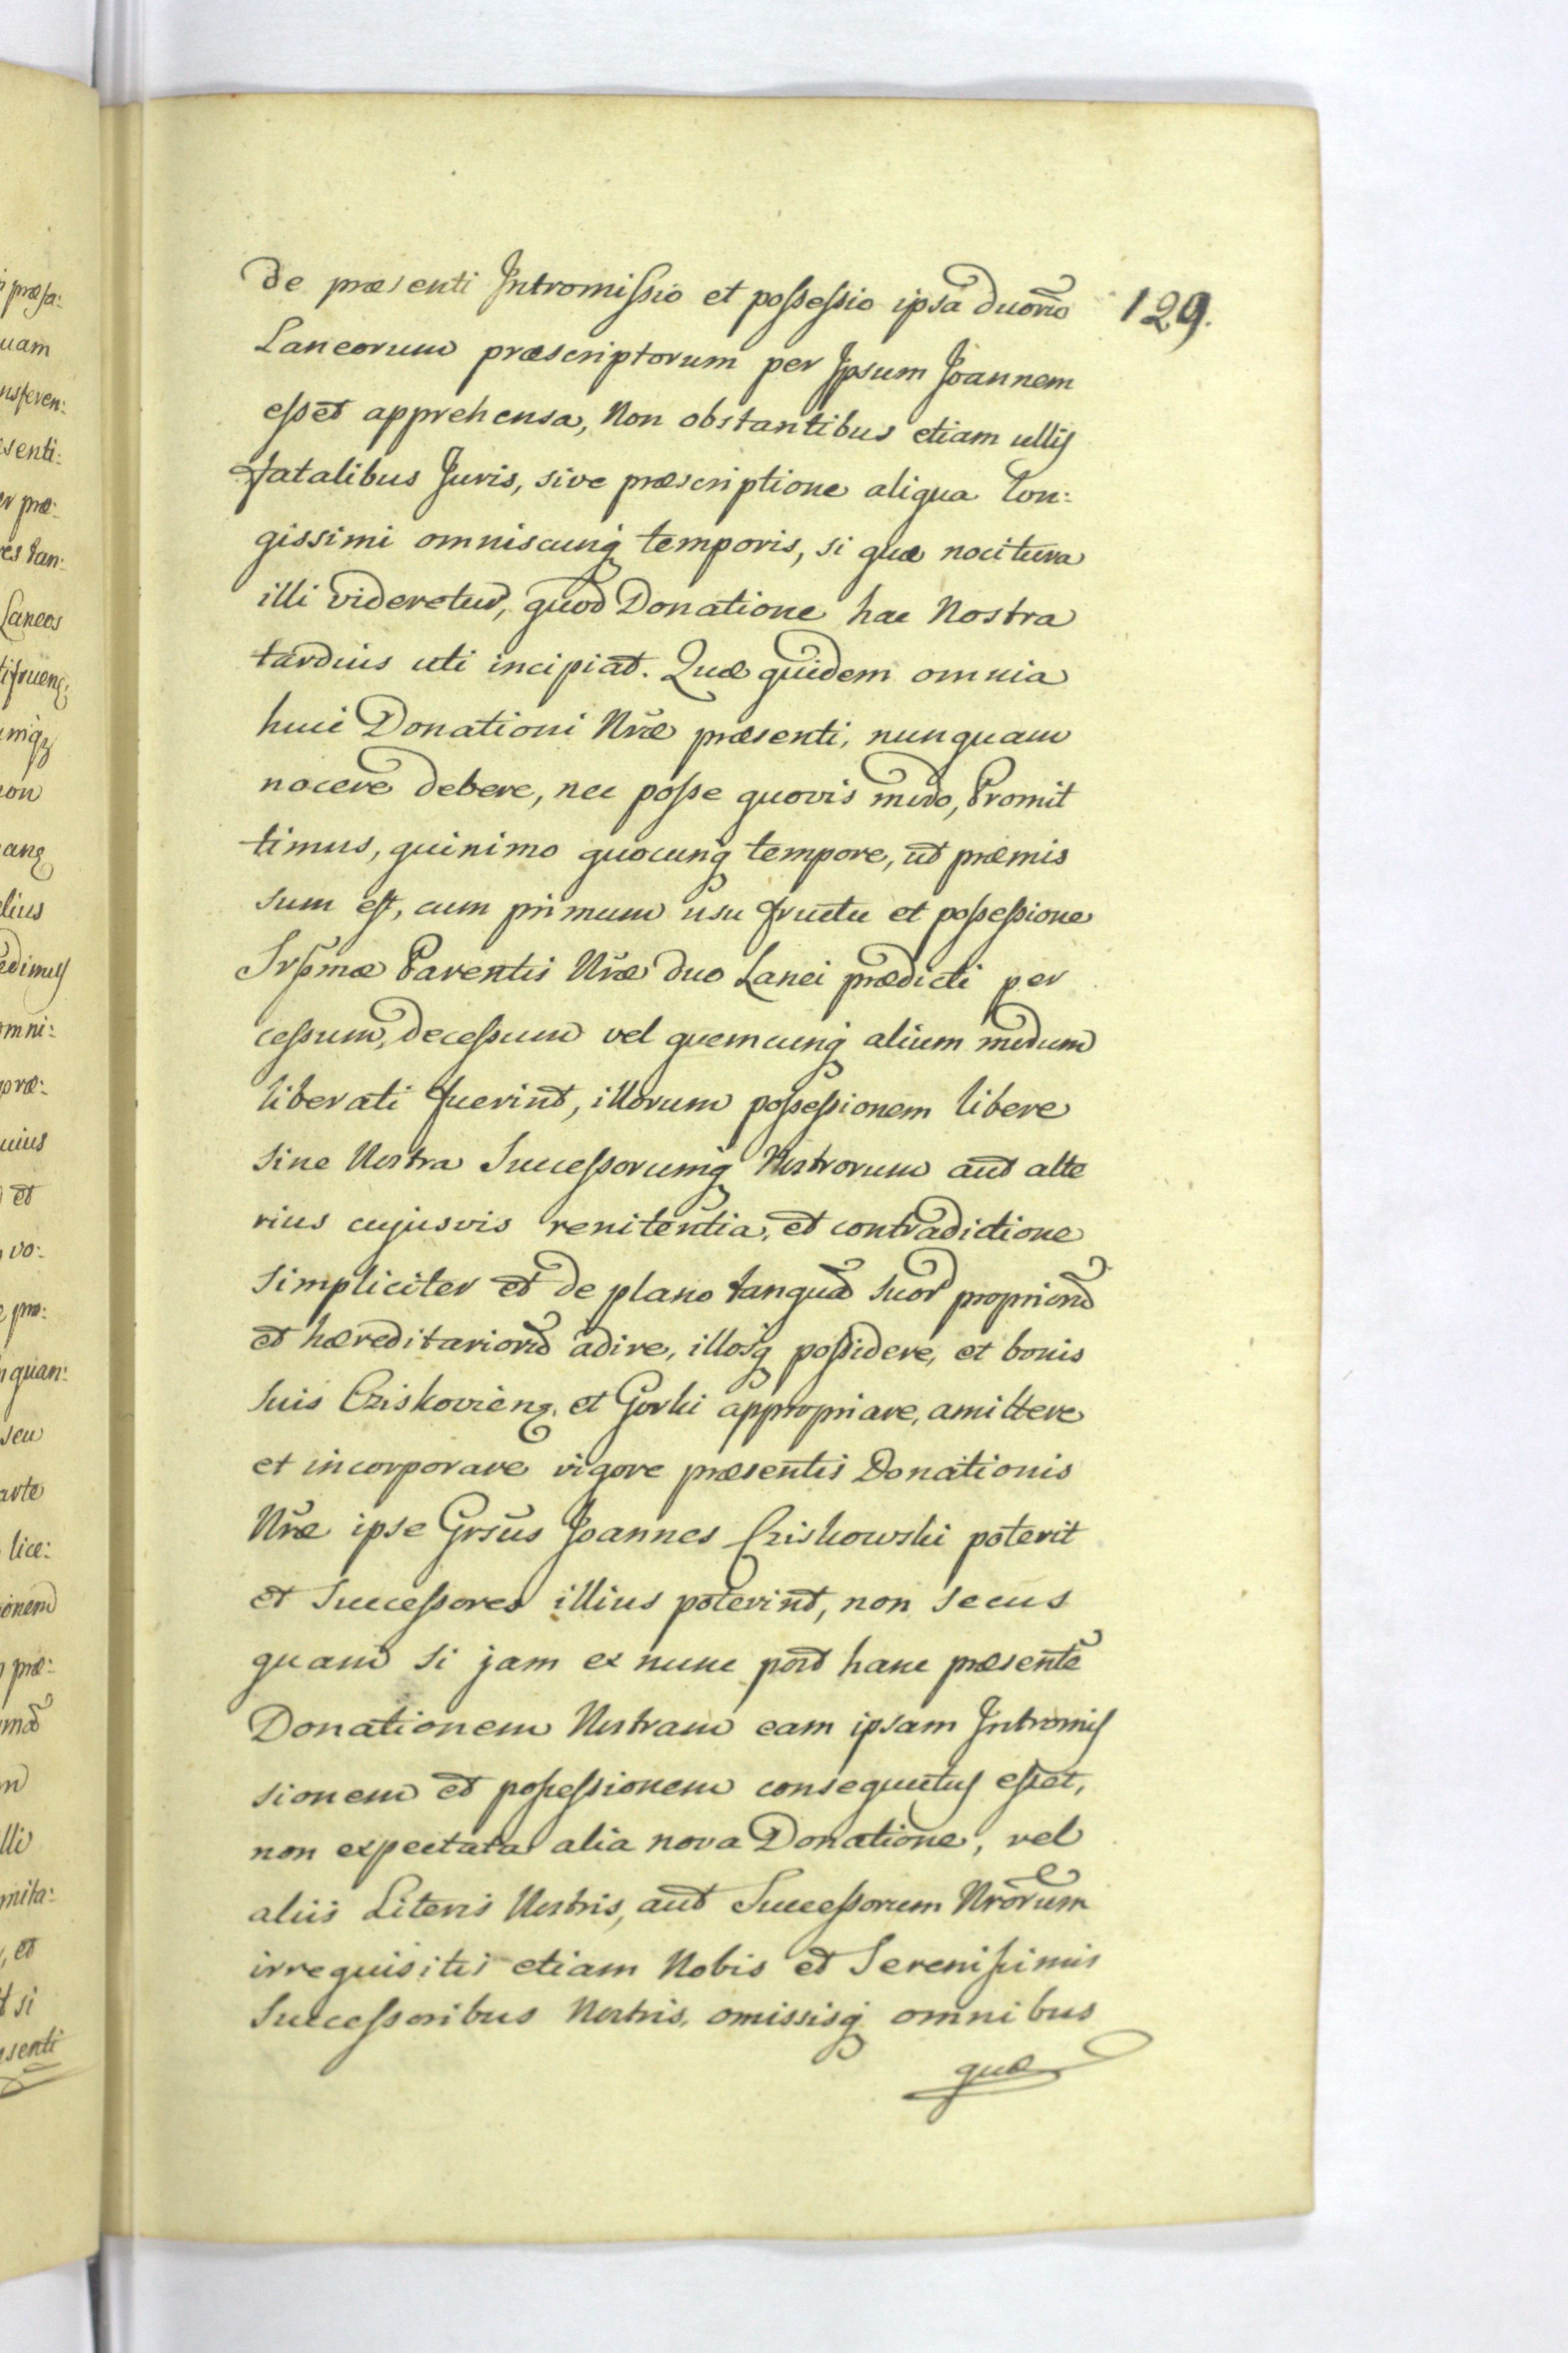 129.
de præsenti Intromissio et possessio ipsa duorũ
Laneorum præscriptorum per Ipsum Joannem
esset apprehensa, Non obstantibus etiam ullis
fatalibus Juris, sive præscriptione aliqua lon:
gissimi omniscunq temporis, si quæ nocitura
illi videretur, quod Donatione hac Nostra
tardius uti incipiat. Quæ quidem omnia
huic Donationi Nræ præsenti, nunquam
nocere debere, nec posse quovis modo, Promit
timus, quinimo quocunq tempore, ut præmis
sum est, cum primum usu fructu et possessione
Srssmæ Parentis Nræ duo Lanei prædicti per
cessum, decessum vel quemcunq alium modum
liberati fuerint, illorum possessionem libere
sine Nostra Successorumq Nostrorum aut alte
rius cujusvis renitentia, et contradictione
simpliciter et de plano tanquã suor propriorũ
et hæreditariorũ adire, illosq possidere, et bonis
suis Cziskovieng. et Gorki appropriare, amittere
et incorporare vigore præsentis Donationis
Nræ ipse Grsus Joannes Cziskowski poterit
et Successores illius poterint, non secus
quam si jam ex nunc post hanc præsentẽ
Donationem Nostram eam ipsam Intromis
sionem et possessionem consequutus esset,
non expectata alia nova Donatione, vel
aliis Literis Nostris, aut Successorum Nrorum
irrequisitis etiam Nobis et Serenissimis
Successoribus Nostris, omissisq omnibus
quæ